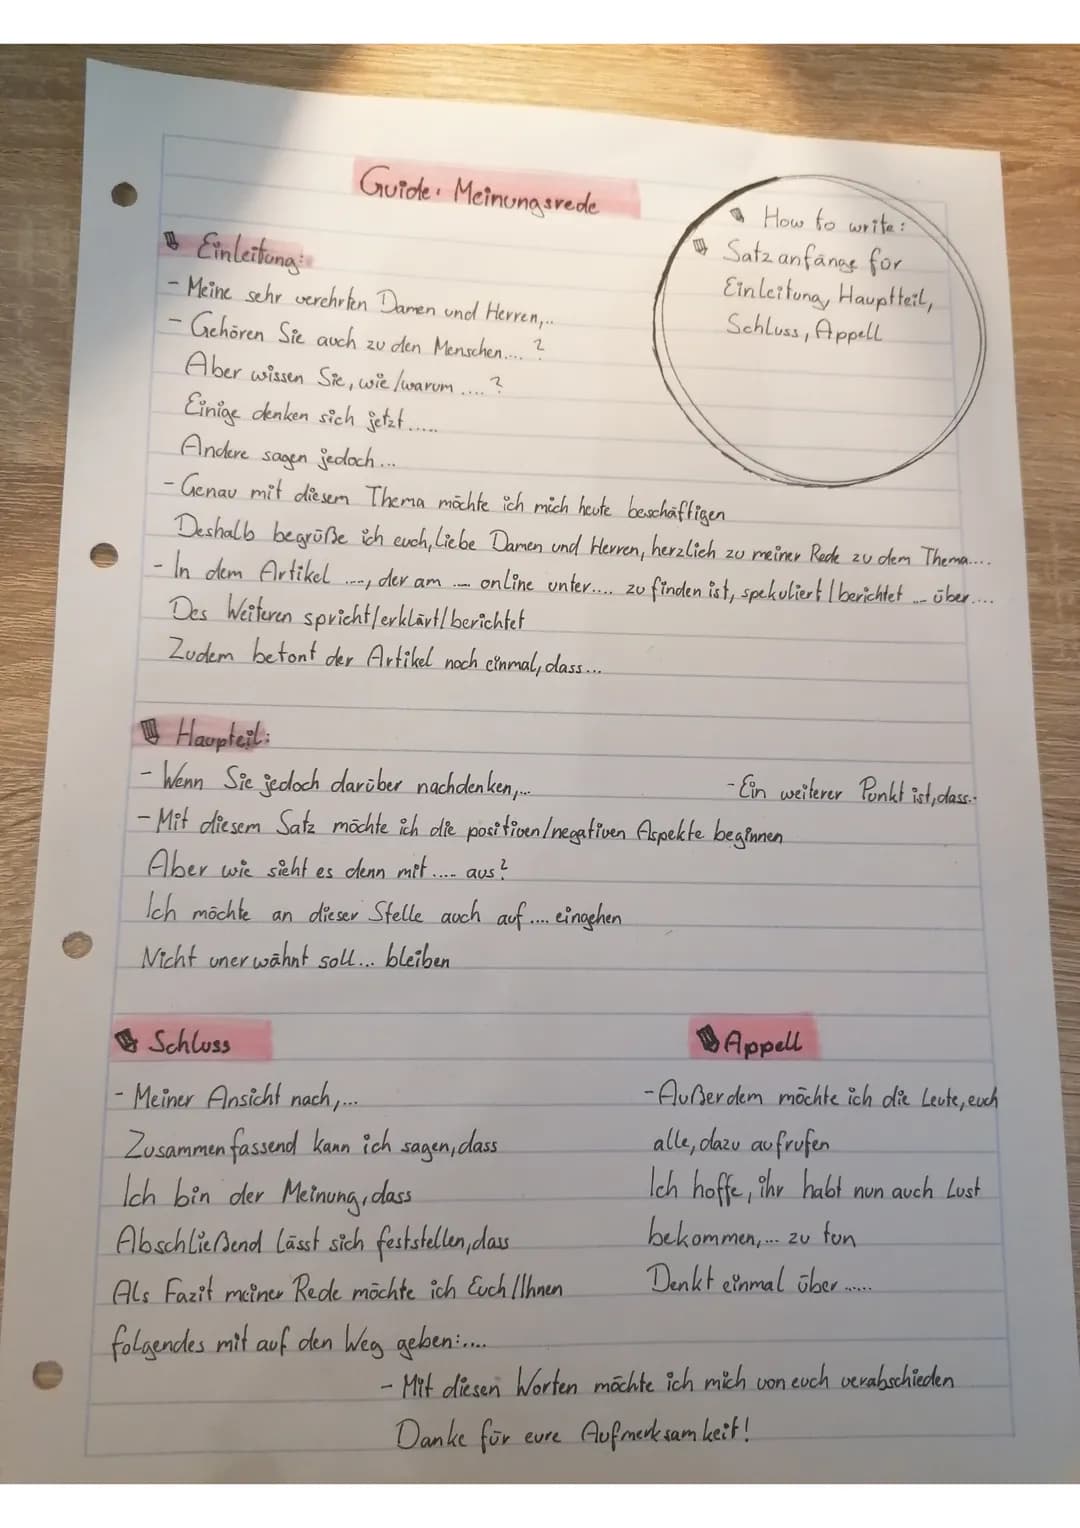 Guide: Meinungsrede
How to write:
Satzanfänge für
Einleitung, Hauptteil,
Schluss, Appell
Einleitung:
- Meine sehr verehrten Damen und Herren,..
- Gehören Sie auch zu den Menschen.... ?
Aber wissen Sie, wie/warum .... ?
Einige denken sich jetzt.....
Andere sagen jedoch...
- Genau mit diesem Thema möchte ich mich heute beschäftigen
Deshalb begrüße ich euch, liebe Damen und Herren, herzlich zu meiner Rede zu dem Thema....
- In dem Artikel ...., der am .... online unter.... zu finden ist, spekuliert/berichtet ... über....
Des Weiteren spricht/erklärt/berichtet
Zudem betont der Artikel noch einmal, dass...
Haupteil:
- Wenn Sie jedoch darüber nachdenken,...
- Ein weiterer Punkt ist, dass..
- Mit diesem Satz möchte ich die positiven/negativen Aspekte beginnen
Aber wie sieht es denn mit.... aus?
Ich möchte an dieser Stelle auch auf.... eingehen
Nicht unerwähnt soll... bleiben
Schluss
- Meiner Ansicht nach,...
Zusammenfassend kann ich sagen, dass
Ich bin der Meinung, dass
Abschließend lässt sich feststellen, dass
Als Fazit meiner Rede möchte ich Euch/Ihnen
folgendes mit auf den Weg geben:....
Appell
- Außerdem möchte ich die Leute, euch
alle, dazu aufrufen
Ich hoffe, ihr habt nun auch Lust
bekommen,... zu tun
Denkt einmal über .....
- Mit diesen Worten möchte ich mich von euch verabschieden
Danke für eure Aufmerksamkeit!